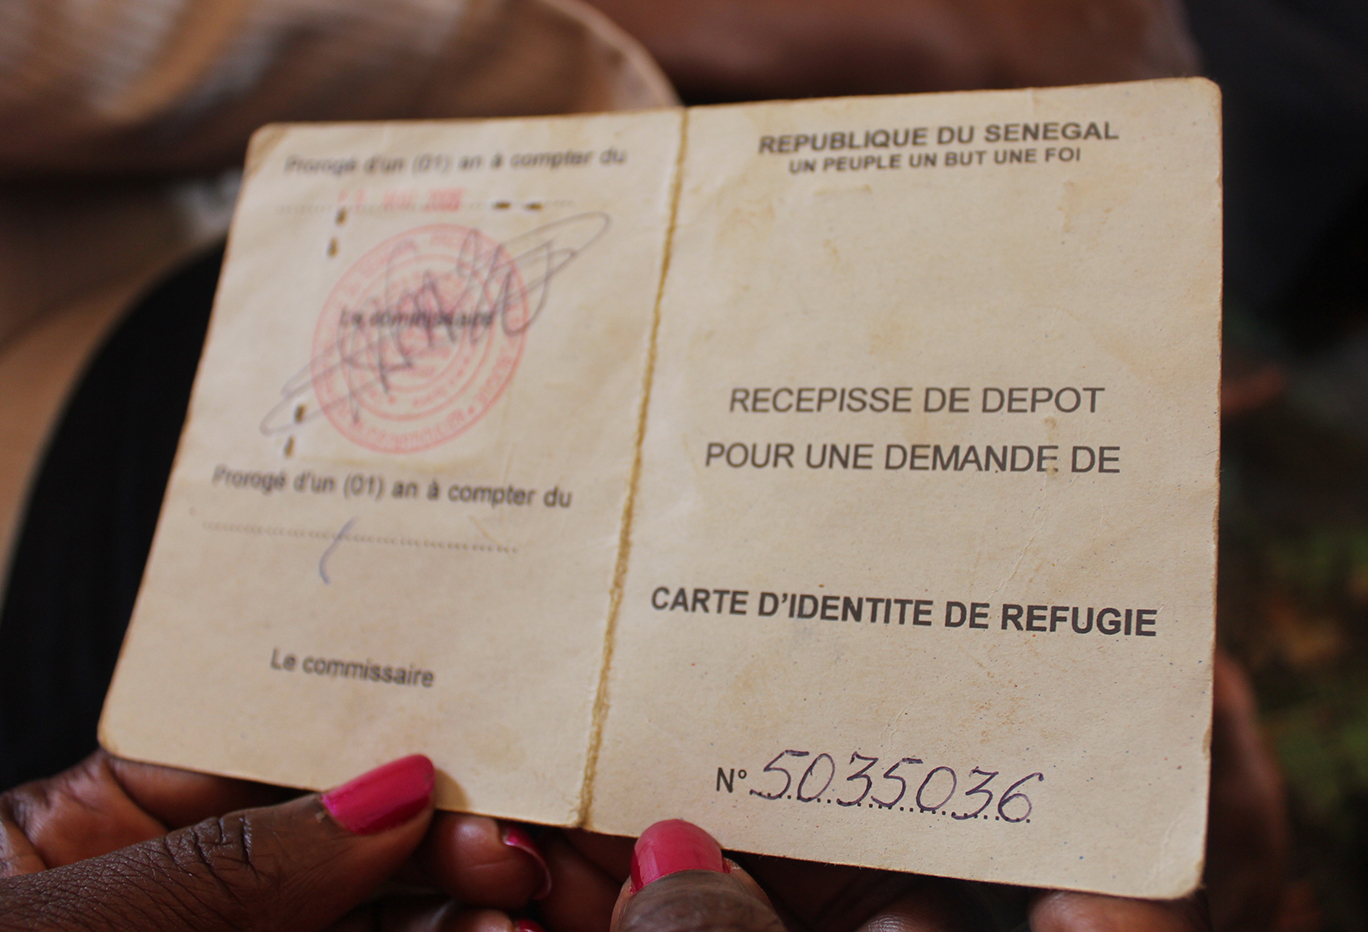 Prorogé d'un (01) an à compter du
Le commissaire
Prorogé d'un (01) an à compter du
Le commissaire
REPUBLIQUE DU SENEGAL
UN PEUPLE UN BUT UNE FOI
RECEPISSE DE DEPOT
POUR UNE DEMANDE DE
CARTE D'IDENTITE DE REFUGIE
N° 5035036